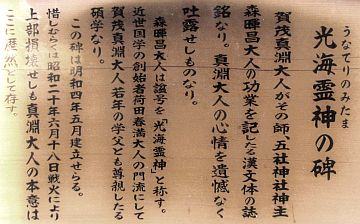 うなてりのみたま
光海霊神の碑
賀茂真淵大人がその師、五社神社神主
森暉昌大人の功業を記したる漢文体の誌
銘なり。真淵大人の心情を遺憾なく
吐露せしものなり。
森暉昌大人は諡号を「光海霊神」と称す。
近世国学の創始者荷田春満大人の門流にして
賀茂真淵大人若年の学父とも尊親したる
碩学なり。
この碑は明和四年五月建立せらる。
惜しむらくは昭和二十年六月十八日戦火により
上部損壊せしも真淵大人の本意は
ここに歴然として存す。